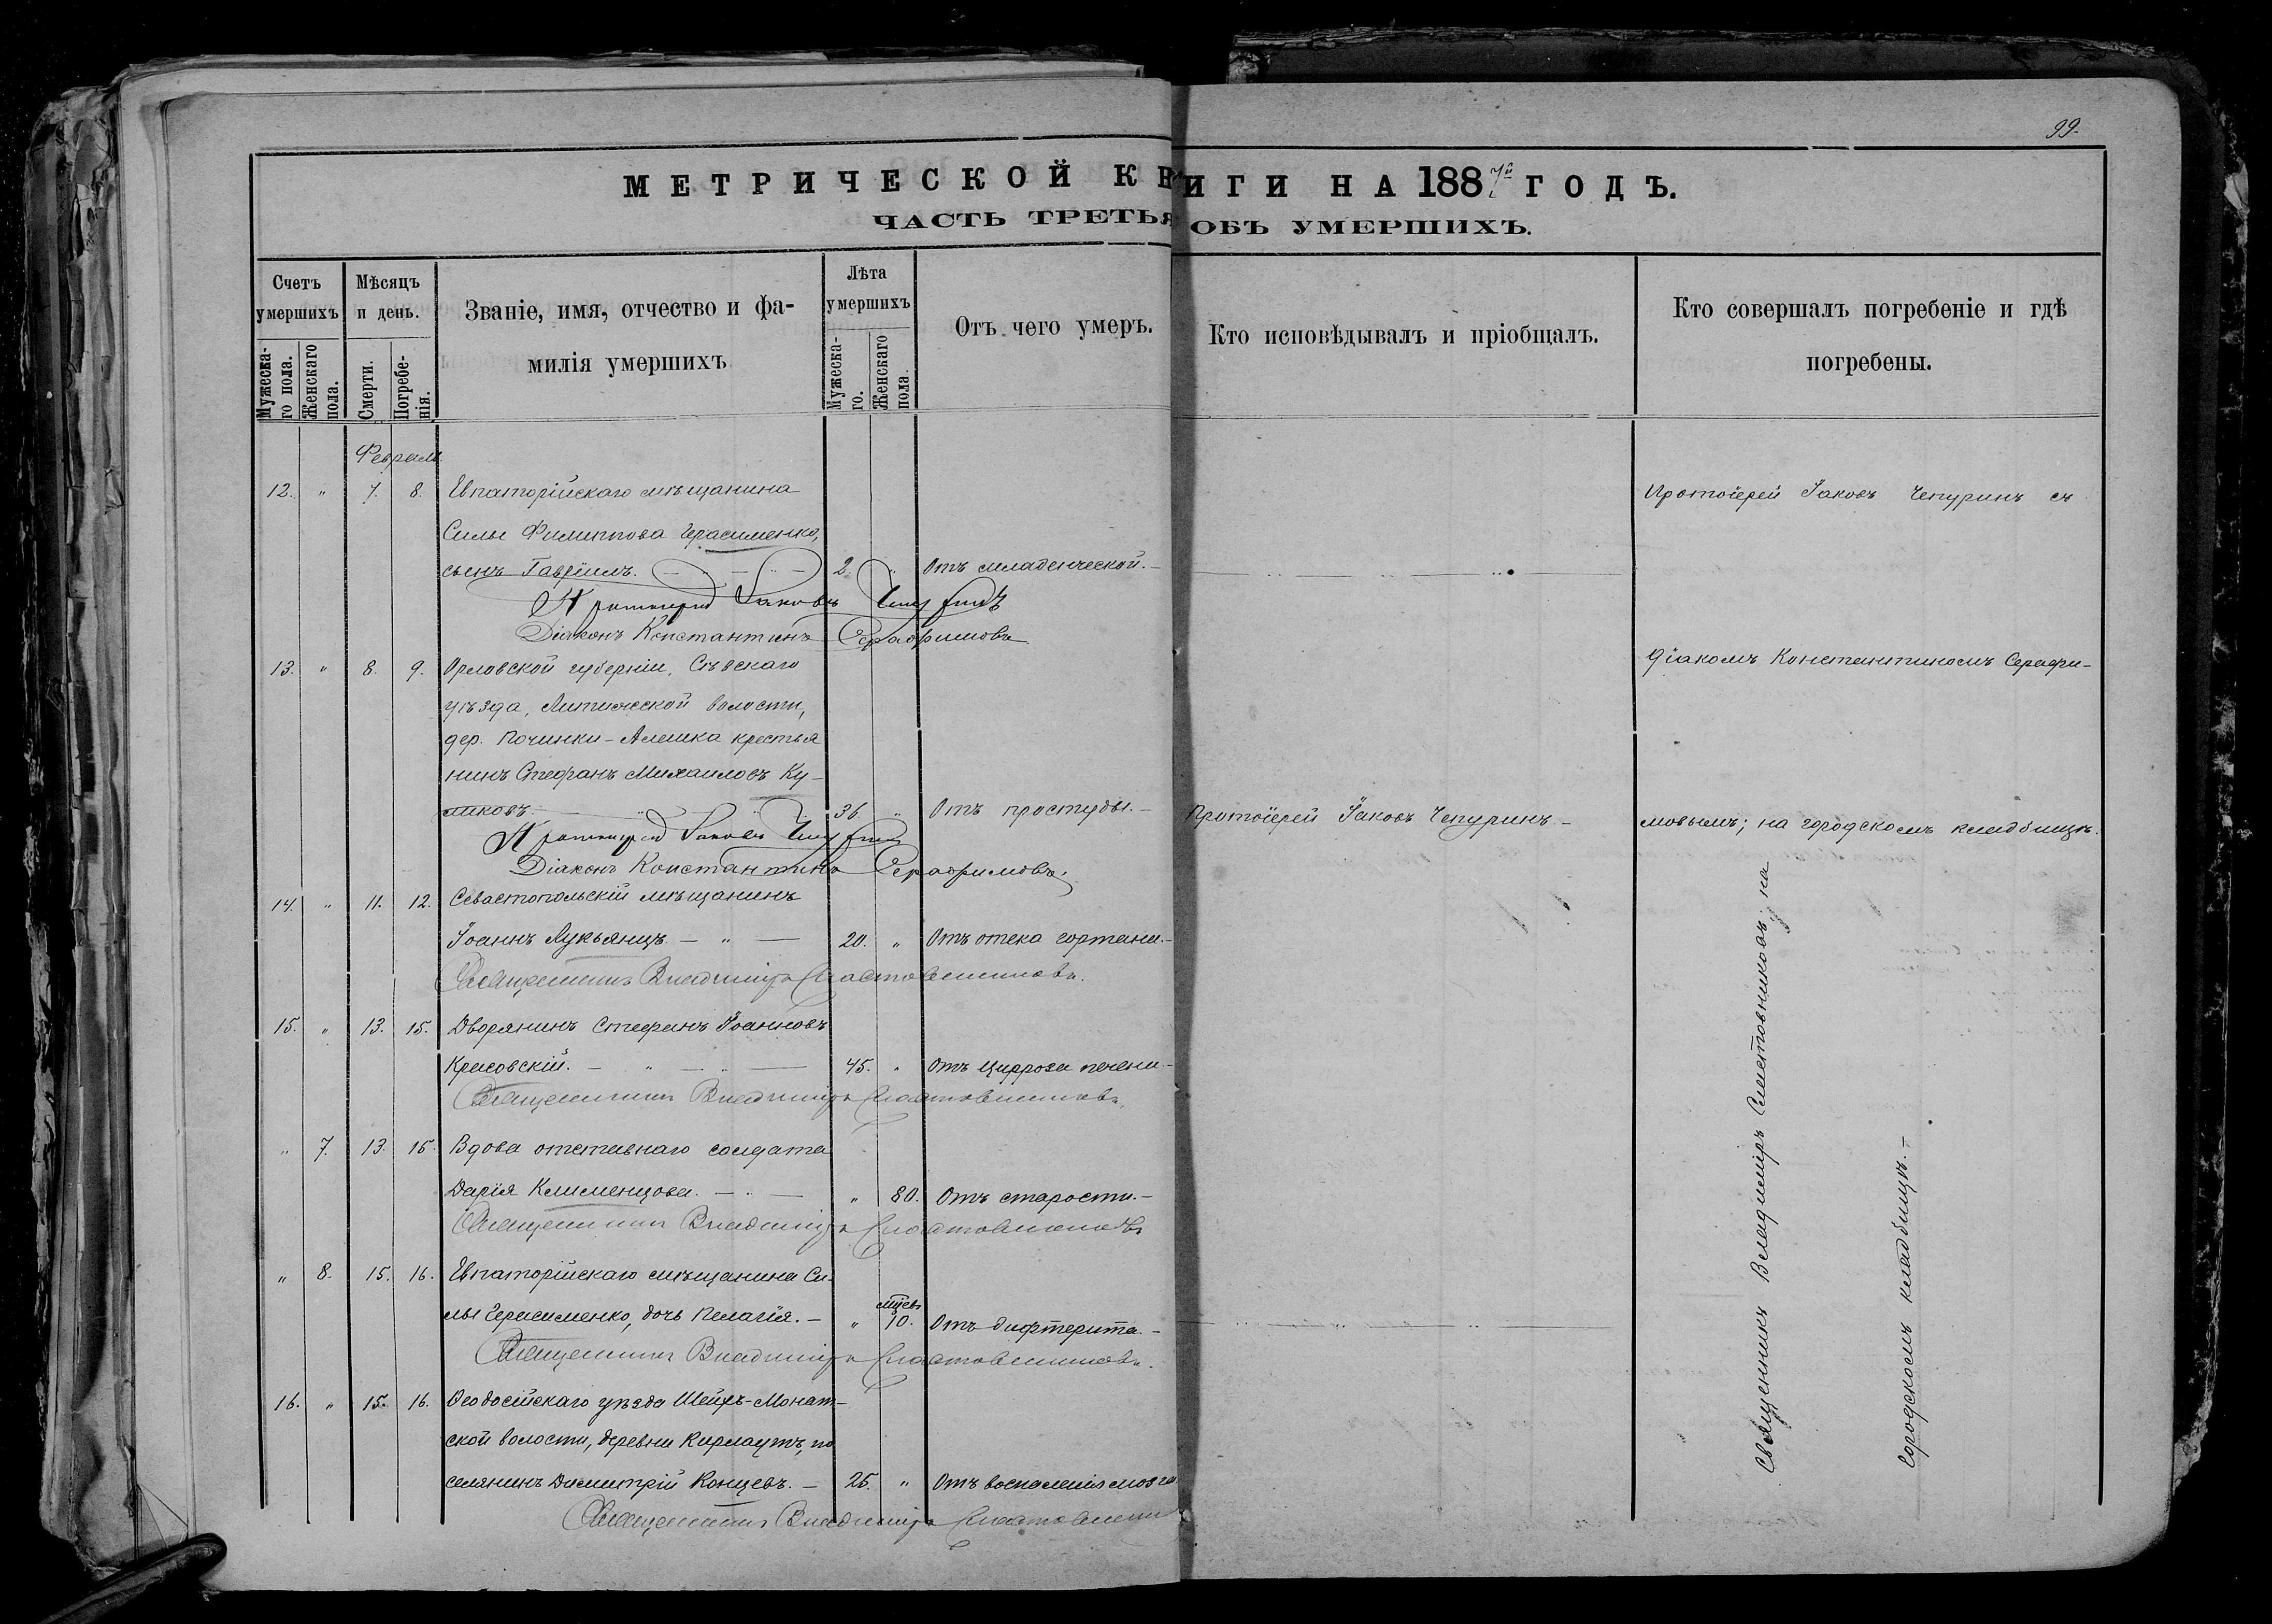 99.
МЕТРИЧЕСКОЙ КНИГИ НА 1887й ГОДЪ.
ЧАСТЬ ТРЕТЬЯ ОБЪ УМЕРШИХЪ.
Счетъ умершихъ
Мужеска-го пола.
Женскаго пола.
Мѣсяцъ и день.
Смерти.
Погребе-нія.
Званіе, имя, отчество и фа-
милія умершихъ
Лѣта умершихъ
Мужеска-го.
Женскаго пола.
Отъ чего умеръ.
Кто исповѣдывалъ и пріобщалъ.
Кто совершалъ погребеніе и гдѣ
погребены.
Февраль
12. " 7. 8. Евпаторійскаго мѣщанина
Силы Филиппова Герасименко,
сынъ Гавріилъ. 2. " Отъ младенческой.
Протоіерей Іаковъ Чепуринъ
Діаконъ Константинъ Серафимовъ
Протоіерей Іаковъ Чепуринъ съ
13. " 8. 9. Орловской губерніи, Сѣвскаго
уѣзда, волости,
дер. Починки-Алешка крестья
нинъ Стефанъ Михаиловъ Ку-
ликовъ. 36 " Отъ простуды. Протоіерей Іаковъ Чепуринъ
Протоіерей Іаковъ Чепуринъ
Діаконъ Константинъ Серафимовъ.
діакомъ Константиномъ Серафи-
мовымъ; на городскомъ кладбищѣ.
14. " 11. 12. Севастопольскій мѣщанинъ
Іоаннъ Лукьянцъ. 20. " Отъ отека гортани.
Священникъ Владиміръ Сластовниковъ.
15. " 13. 15. Дворянинъ Стефанъ Іоанновъ
Красовскій. 45. " Отъ цирроза печени.
Священникъ Владиміръ Сластовниковъ.
" 7. 13. 15. Вдова отставнаго солдата
Дарія Клименцова. " 80. Отъ старости.
Священникъ Владиміръ Сластовниковъ
" 8. 15. 16. Евпаторійскаго мѣщанина Си-
лы Герасименко, дочь Пелагія. " мцевъ 10. Отъ дифтерита.
Священникъ Владиміръ Сластовниковъ.
16. " 15. 16. Ѳеодосійскаго уѣзда Шейхъ-Монат-
ской волости, деревни Кирлаутъ, по
селянинъ Димитрій Концевъ. 25. " Отъ воспаленія мозга
Священникъ Владиміръ
Священникъ Владиміръ Сластовниковъ; на
городскомъ кладбищѣ.